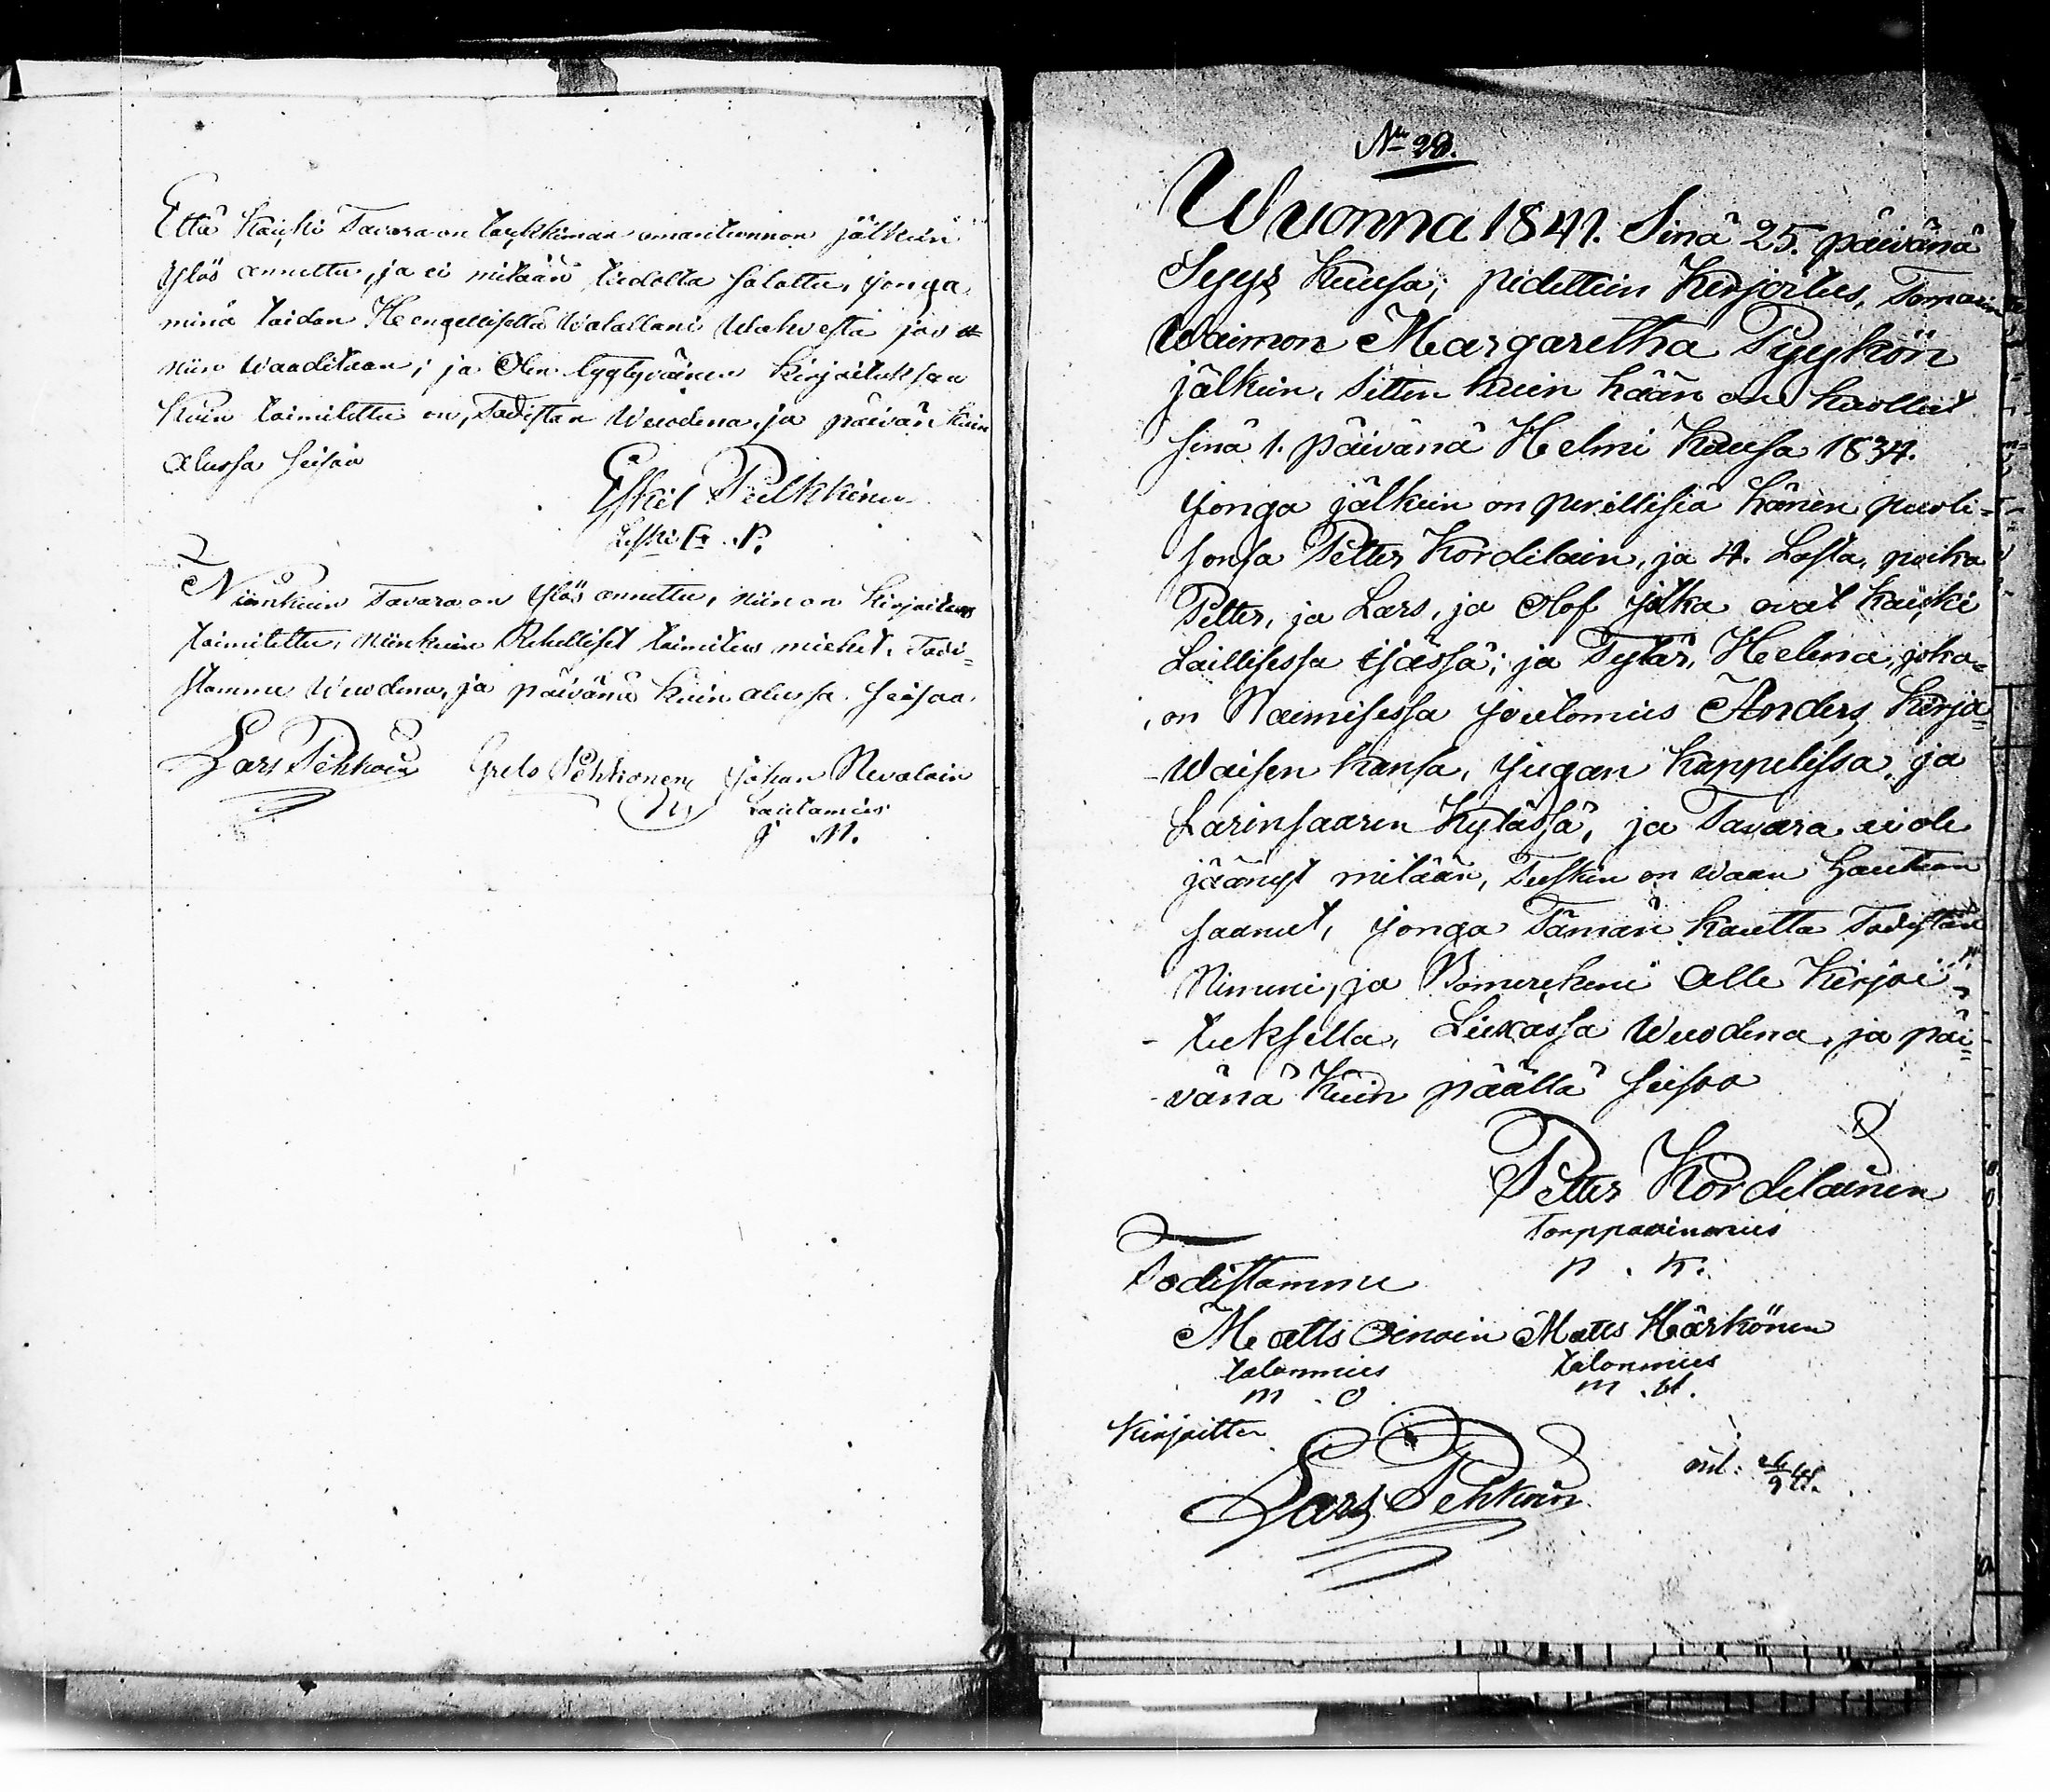 Että kaikki Tavara on tarkkiman omantunnon jälkein
Ylös annettu, ja ei mitään tiedolta salattu, jonga
minä taidan Hengellisellä Walallani Wahvesta jos =
niin Waaditaan; ja Olen tyytyväinen Kirjoituksaan
kuin toimitettu on, Todistan Wuodena, ja päivän kuin
alussa seisoo
Eskel Pulkkinen
Leski E. P.
Niinkuin Tavara on Ylös annettu, niin on Kirjoitus
toimitettu, niinkuin Rehelliset toimitus miehet, Todi=
stamme Wuodena, ja päivänä kuin alussa seisoo.
Lars Pehkoin Grels Pehkonen Johan Nevalain
Lautamies
J N.
No 28.
Wuonna 1841. Sinä 25. päivänä
Syys kuusa; pidettiin Kirjoitus, Torparin
Waimon Margaretha Pyykön
jälkein, sitten kuin hään on kuollut
sinä 1. päivänä Helmi kuusa 1834.
jonga jälkein on perillisiä hänen puoli-
sonsa Petter Kordelain, ja 4. Lasta, poika
Petter, ja Lars, ja Olof jotka ovat kaikki
Laillisessa ijässä; ja Tytär, Helena, joka=
on Naimisessa joutomies Anders Kirja=
Waisen kansa, Jugan kappelissa, ja
Larinsaaren Kylässä, ja Tavara ei ole
jäänyt mitään, Tuskin on waan hautaan
saanut, jonga Tämän kautta Todistan
Nimeni, ja Bomerkeni Alle Kirjoi-
- tuksella, Liexassa Wuodena, ja päi=
- vänä kuin päällä seisoo
Petter Kordelainen
Torpparinmies
P. K.
Todistamme
Matts Oinoin Matts Härkönen
talonmies talonmies
M. O. M. H.
Kirjoitta
Lars Pehkoin